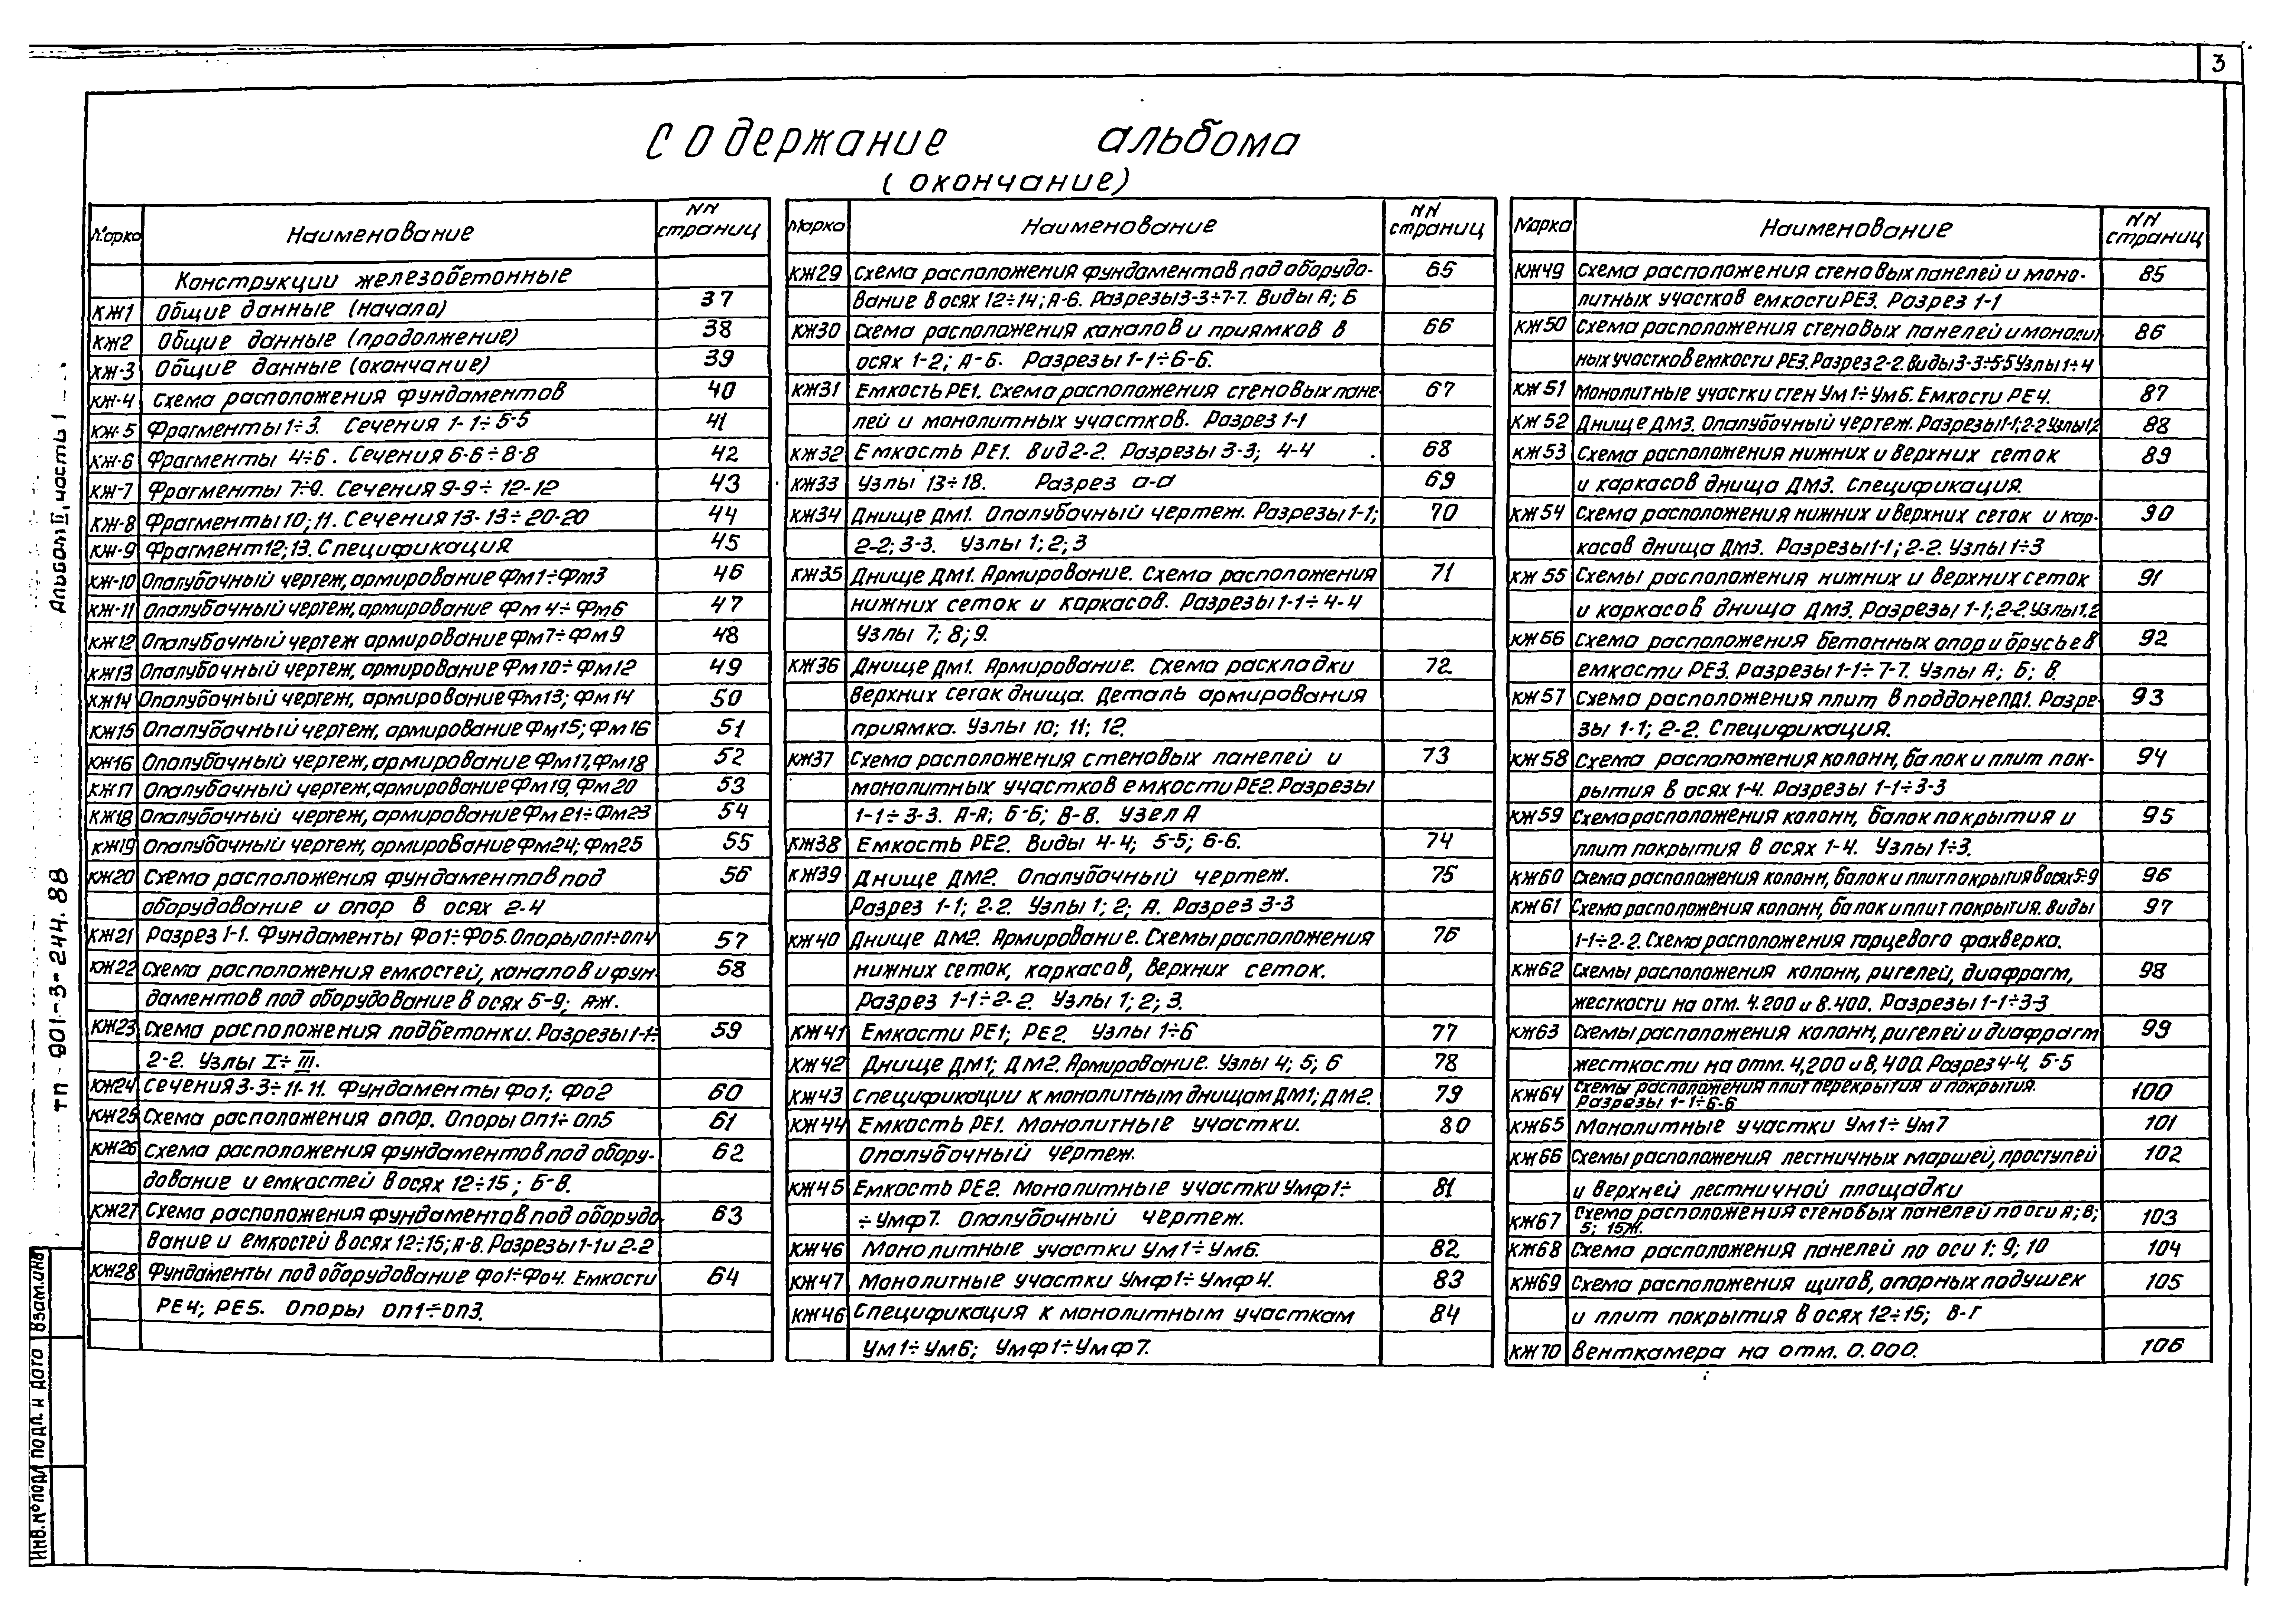 3
Содержание альбома
(окончание)
Марка Наименование NN страниц
Конструкции железобетонные
КЖ1 Общие данные (начало) 37
КЖ2 Общие данные (продолжение) 38
КЖ-3 Общие данные (окончание) 39
КЖ-4 Схема расположения фундаментов 40
КЖ-5 Фрагменты 1÷3. Сечения 1-1÷5-5 41
КЖ-6 Фрагменты 4÷6. Сечения 6-6÷8-8 42
КЖ-7 Фрагменты 7÷9. Сечения 9-9÷12-12 43
КЖ-8 Фрагменты 10; 11. Сечения 13-13÷20-20 44
КЖ-9 Фрагмент 12; 13. Спецификация 45
КЖ-10 Опалубочный чертеж, армирование Фм1÷Фм3 46
КЖ-11 Опалубочный чертеж, армирование Фм4÷Фм6 47
КЖ12 Опалубочный чертеж армирование Фм7÷Фм9 48
КЖ13 Опалубочный чертеж, армирование Фм10÷Фм12 49
КЖ14 Опалубочный чертеж, армирование Фм13; Фм14 50
КЖ15 Опалубочный чертеж, армирование Фм15; Фм16 51
КЖ16 Опалубочный чертеж, армирование Фм17, Фм18 52
КЖ17 Опалубочный чертеж, армирование Фм19, Фм20 53
КЖ18 Опалубочный чертеж, армирование Фм21÷Фм23 54
КЖ19 Опалубочный чертеж, армирование Фм24; Фм25 55
КЖ20 Схема расположения фундаментов под 56
оборудование и опор в осях 2-4
КЖ21 Разрез 1-1. Фундаменты Фо1÷Фо5. Опоры оп1÷оп4 57
КЖ22 Схема расположения емкостей, каналов и фун- 58
даментов под оборудование в осях 5-9; А-Ж.
КЖ23 Схема расположения подбетонки. Разрезы 1-1÷ 59
2-2. Узлы I÷III.
КЖ24 Сечения 3-3÷11-11. Фундаменты Фо1; Фо2 60
КЖ25 Схема расположения опор. Опоры Оп1÷оп5 61
КЖ26 Схема расположения фундаментов под обору- 62
дование и емкостей в осях 12÷15; Б-В.
КЖ27 Схема расположения фундаментов под оборудо- 63
вание и емкостей в осях 12÷15; А-В. Разрезы 1-1 и 2-2
КЖ28 Фундаменты под оборудование Фо1÷Фо4. Емкости 64
РЕ4; РЕ5. Опоры оп1÷оп3.
Марка Наименование NN страниц
КЖ29 Схема расположения фундаментов под оборудо- 65
вание в осях 12÷14; А-Б. Разрезы 3-3÷7-7. Виды А; Б
КЖ30 Схема расположения каналов и приямков в 66
осях 1-2; А-Б. Разрезы 1-1÷6-6.
КЖ31 Емкость РЕ1. Схема расположения стеновых пане- 67
лей и монолитных участков. Разрез 1-1
КЖ32 Емкость РЕ1. Вид 2-2. Разрезы 3-3; 4-4 68
КЖ33 Узлы 13÷18. Разрез а-а 69
КЖ34 Днище Дм1. Опалубочный чертеж. Разрезы 1-1; 70
2-2; 3-3. Узлы 1; 2; 3
КЖ35 Днище ДМ1. Армирование. Схема расположения 71
нижних сеток и каркасов. Разрезы 1-1÷4-4
Узлы 7; 8; 9.
КЖ36 Днище Дм1. Армирование. Схема раскладки 72
верхних сеток днища. Деталь армирования
приямка. Узлы 10; 11; 12.
КЖ37 Схема расположения стеновых панелей и 73
монолитных участков емкости РЕ2. Разрезы
1-1÷3-3. А-А; Б-Б; В-В. Узел А
КЖ38 Емкость РЕ2. Виды 4-4; 5-5; 6-6. 74
КЖ39 Днище ДМ2. Опалубочный чертеж. 75
Разрез 1-1; 2-2. Узлы 1; 2; А. Разрез 3-3
КЖ40 Днище ДМ2. Армирование. Схемы расположения 76
нижних сеток, каркасов, верхних сеток.
Разрез 1-1÷2-2. Узлы 1; 2; 3.
КЖ41 Емкости РЕ1; РЕ2. Узлы 1÷6 77
КЖ42 Днище ДМ1; ДМ2. Армирование. Узлы 4; 5; 6 78
КЖ43 Спецификации к монолитным днищам ДМ1; ДМ2. 79
КЖ44 Емкость РЕ1. Монолитные участки. 80
Опалубочный чертеж.
КЖ45 Емкость РЕ2. Монолитные участки Умф1÷ 81
÷Умф7. Опалубочный чертеж.
КЖ46 Монолитные участки Ум1÷Ум6. 82
КЖ47 Монолитные участки Умф1÷Умф4. 83
КЖ46 Спецификация к монолитным участкам 84
Ум1÷Ум6; Умф1÷Умф7.
Марка Наименование NN страниц
КЖ49 Схема расположения стеновых панелей и моно- 85
литных участков емкости РЕ3. Разрез 1-1
КЖ50 Схема расположения стеновых панелей и монолит- 86
ных участков емкости РЕ3. Разрез 2-2. Виды 3-3÷5-5 Узлы 1÷4
КЖ51 Монолитные участки стен Ум1÷Ум6. Емкости РЕ4. 87
КЖ52 Днище ДМ3. Опалубочный чертеж. Разрезы 1-1; 2-2 Узлы 1,2 88
КЖ53 Схема расположения нижних и верхних сеток 89
и каркасов днища ДМ3. Спецификация.
КЖ54 Схема расположения нижних и верхних сеток и кар- 90
касов днища ДМ3. Разрезы 1-1; 2-2. Узлы 1÷3
КЖ55 Схемы расположения нижних и верхних сеток 91
и каркасов днища ДМ3. Разрезы 1-1; 2-2. Узлы 1,2
КЖ56 Схема расположения бетонных опор и брусьев 92
емкости РЕ3. Разрезы 1-1÷7-7. Узлы А; Б; В.
КЖ57 Схема расположения плит в поддоне ПД1. Разре- 93
зы 1-1; 2-2. Спецификация.
КЖ58 Схема расположения колонн, балок и плит пок- 94
рытия в осях 1-4. Разрезы 1-1÷3-3
КЖ59 Схема расположения колонн, балок покрытия и 95
плит покрытия в осях 1-4. Узлы 1÷3.
КЖ60 Схема расположения колонн, балок и плит покрытия в осях 5÷9 96
КЖ61 Схема расположения колонн, балок и плит покрытия. Виды 97
1-1÷2-2. Схема расположения торцевого фахверка.
КЖ62 Схемы расположения колонн, ригелей, диафрагм, 98
жесткости на отм. 4.200 и 8.400. Разрезы 1-1÷3-3
КЖ63 Схемы расположения колонн, ригелей и диафрагм 99
жесткости на отм. 4,200 и 8,400. Разрез 4-4, 5-5
КЖ64 Схемы расположения плит перекрытия и покрытия. 100
Разрезы 1-1÷6-6
КЖ65 Монолитные участки Ум1÷Ум7 101
КЖ66 Схемы расположения лестничных маршей, проступей 102
и верхней лестничной площадки
КЖ67 Схема расположения стеновых панелей по оси А; В; 103
5; 15Ж.
КЖ68 Схема расположения панелей по оси 1; 9; 10 104
КЖ69 Схема расположения щитов, опорных подушек 105
и плит покрытия в осях 12÷15; В-Г
КЖ70 Венткамера на отм. 0.000. 106
ТП 901-3-244.88 Альбом II, часть 1
Инв. № подл Подп. и дата Взам. инв